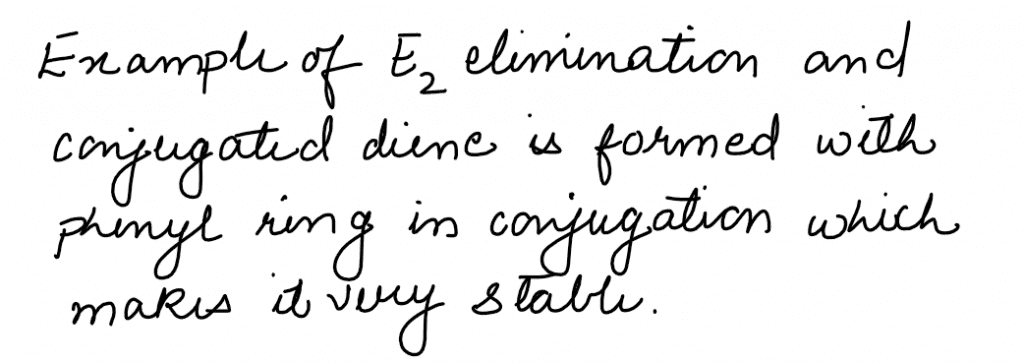 Example of E₂ elimination and
conjugated diene is formed with
phenyl ring in conjugation which
makes it very stable.